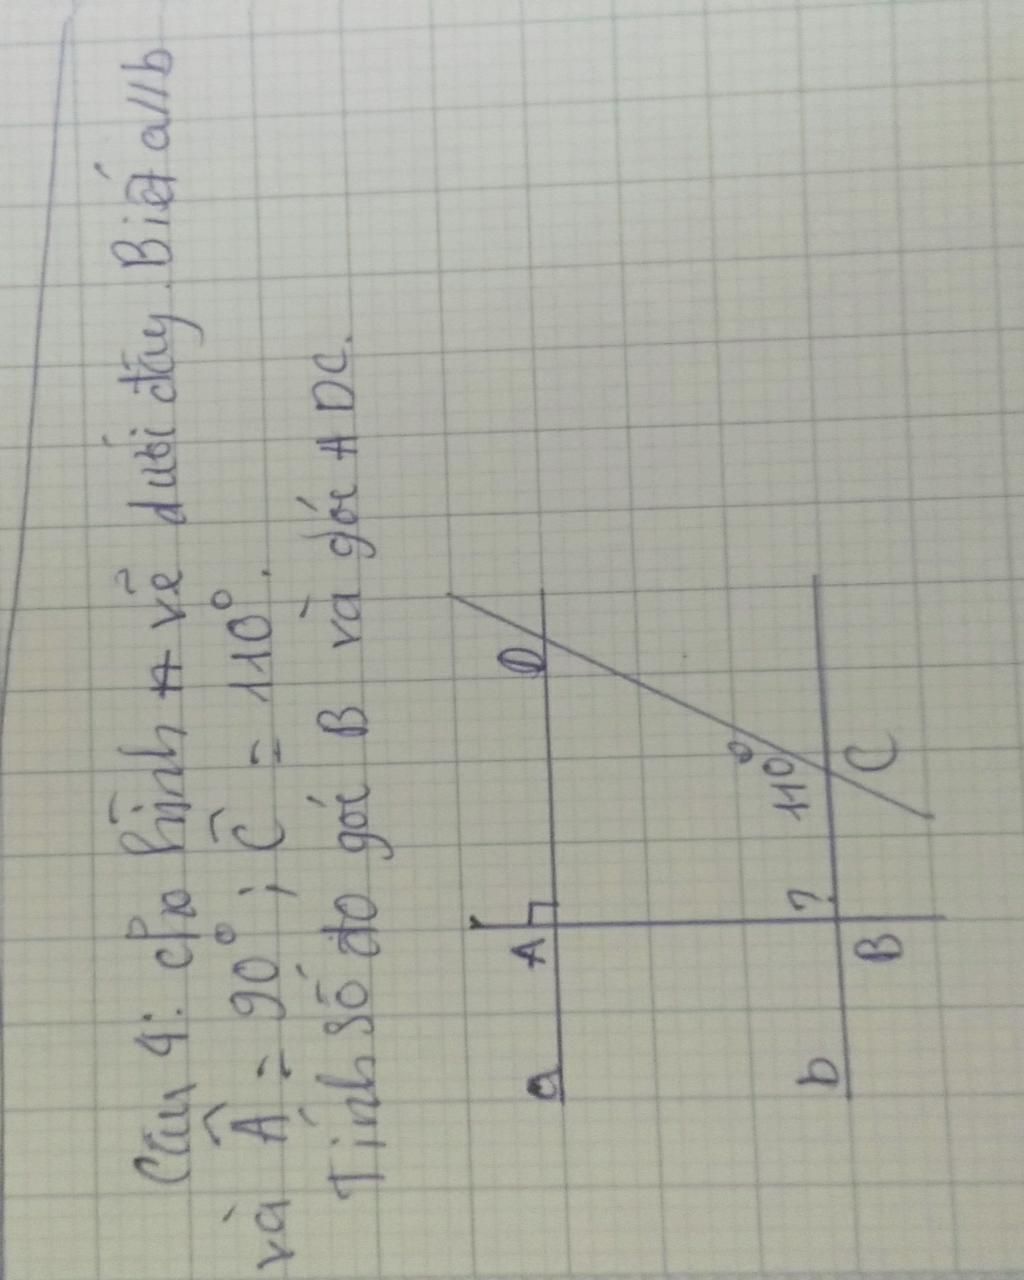 Câu 4: cho hình vẽ dưới đây. Biết a//b
và Â = 90°; Ĉ = 110°.
Tính số đo góc B và góc ADC.
A D
a
110°
?
b
B C